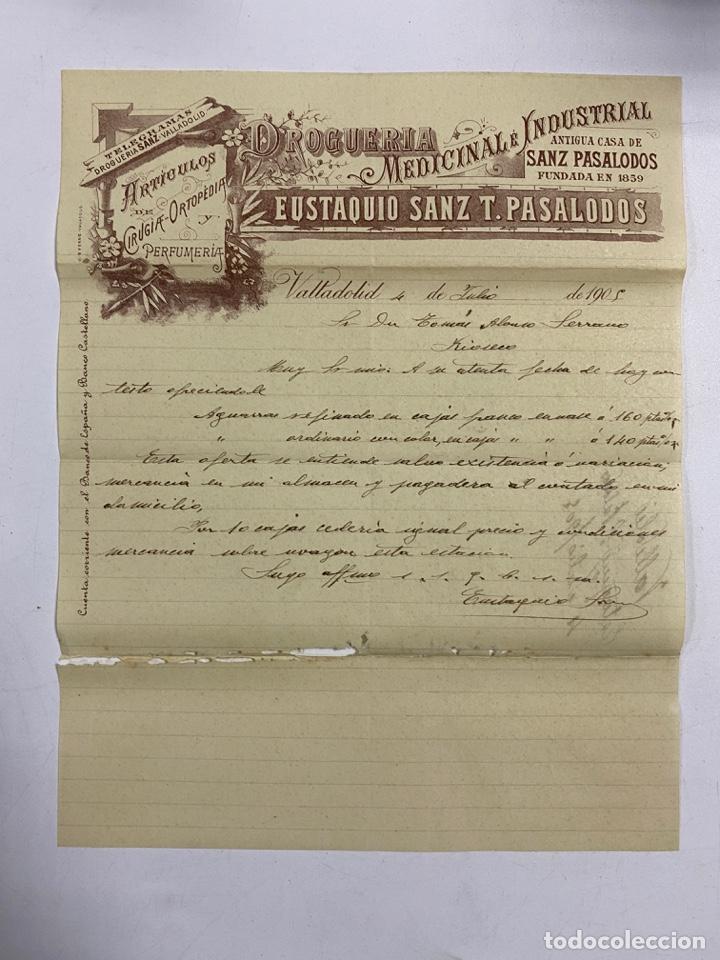 TELEGRAMAS
DROGUERIA SANZ-VALLADOLID
ARTÍCULOS
DE
CIRUGIA-ORTOPEDIA
Y
PERFUMERÍA
DROGUERIA
MEDICINAL É INDUSTRIAL
ANTIGUA CASA DE
SANZ PASALODOS
FUNDADA EN 1859
EUSTAQUIO SANZ T. PASALODOS
Cuenta corriente con el Banco de España y Banco Castellano
Valladolid 4 de Julio de 1905
Sr Dn Tomás Alonso Serrano
Rioseco
Muy Sr mio: A su atenta fecha de hoy con
testo
Aguarras refinado en cajas franco envase á 160 ptas %
" ordinario con color, en cajas " " á 140 ptas %
Esta oferta se entiende salvo existencia ó variacion,
mercancia en mi almacen y pagadera al contado en mi
domicilio,
Por 10 cajas cederia igual precio y condiciones
mercancia sobre wagon esta estacion.
Suyo affmo s. s. q. b. s. m.
Eustaquio Sanz
todocoleccion
todocoleccion.net